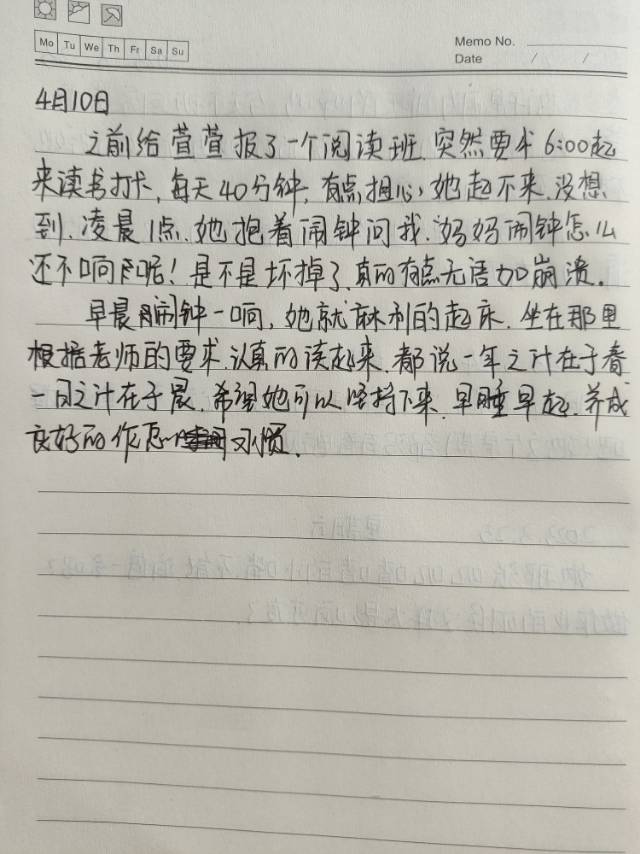 Mo Tu We Th Fr Sa Su
Memo No.
Date / /
4月10日
之前给萱萱报了一个阅读班.突然要求6:00起
来读书打卡,每天40分钟,有点担心,她起不来.没想
到.凌晨1点.她抱着闹钟问我.妈妈闹钟怎么
还不响啊呢!是不是坏掉了.真的有点无语加崩溃.
早晨闹钟一响,她就麻利的起床.坐在那里
根据老师的要求.认真的读起来.都说一年之计在于春
一日之计在于晨.希望她可以坚持下来.早睡早起.养成
良好的作息习惯.